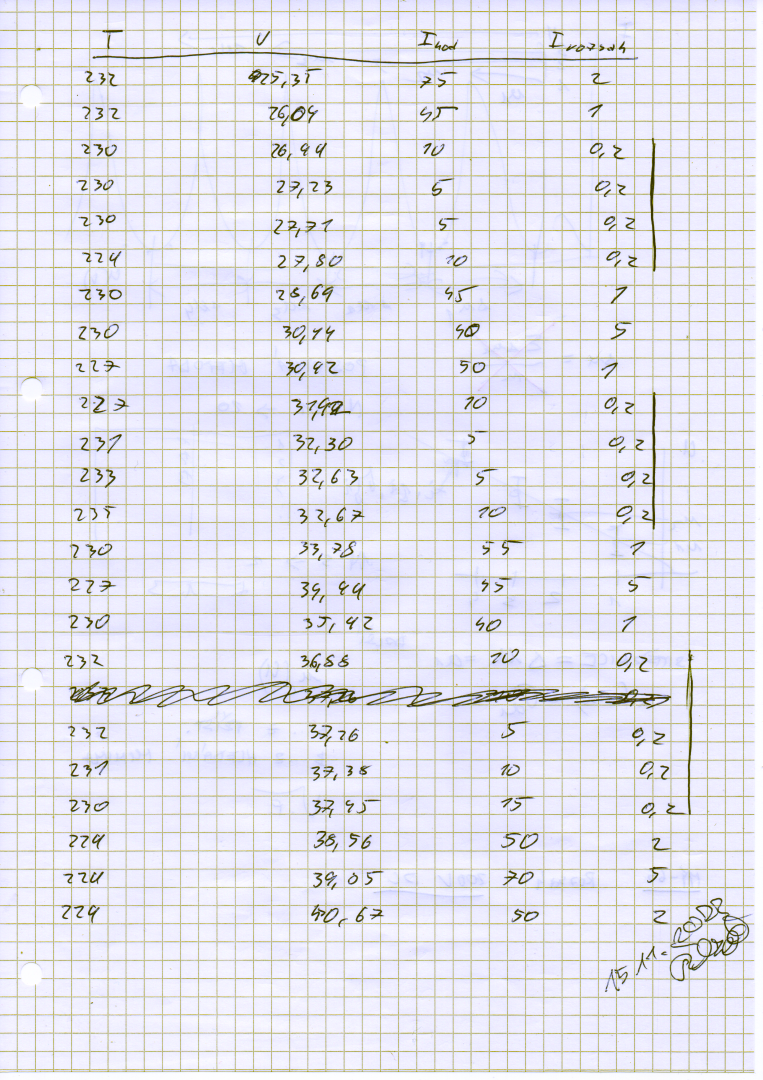 T U I_hod I_rozsah
232 25,35 75 2
232 26,04 45 1
230 26,44 10 0,2
230 27,23 5 0,2
230 27,71 5 0,2
224 27,80 10 0,2
230 28,69 45 1
230 30,14 40 5
227 30,42 50 1
227 10 0,2
231 32,30 5 0,2
233 32,63 5 0,2
235 32,67 10 0,2
230 33,78 55 1
227 34,44 45 5
230 35,42 40 1
232 36,88 10 0,2
232 37,26 5 0,2
231 37,38 10 0,2
230 37,45 15 0,2
224 38,56 50 2
224 39,05 70 5
224 40,67 50 2
15.11.